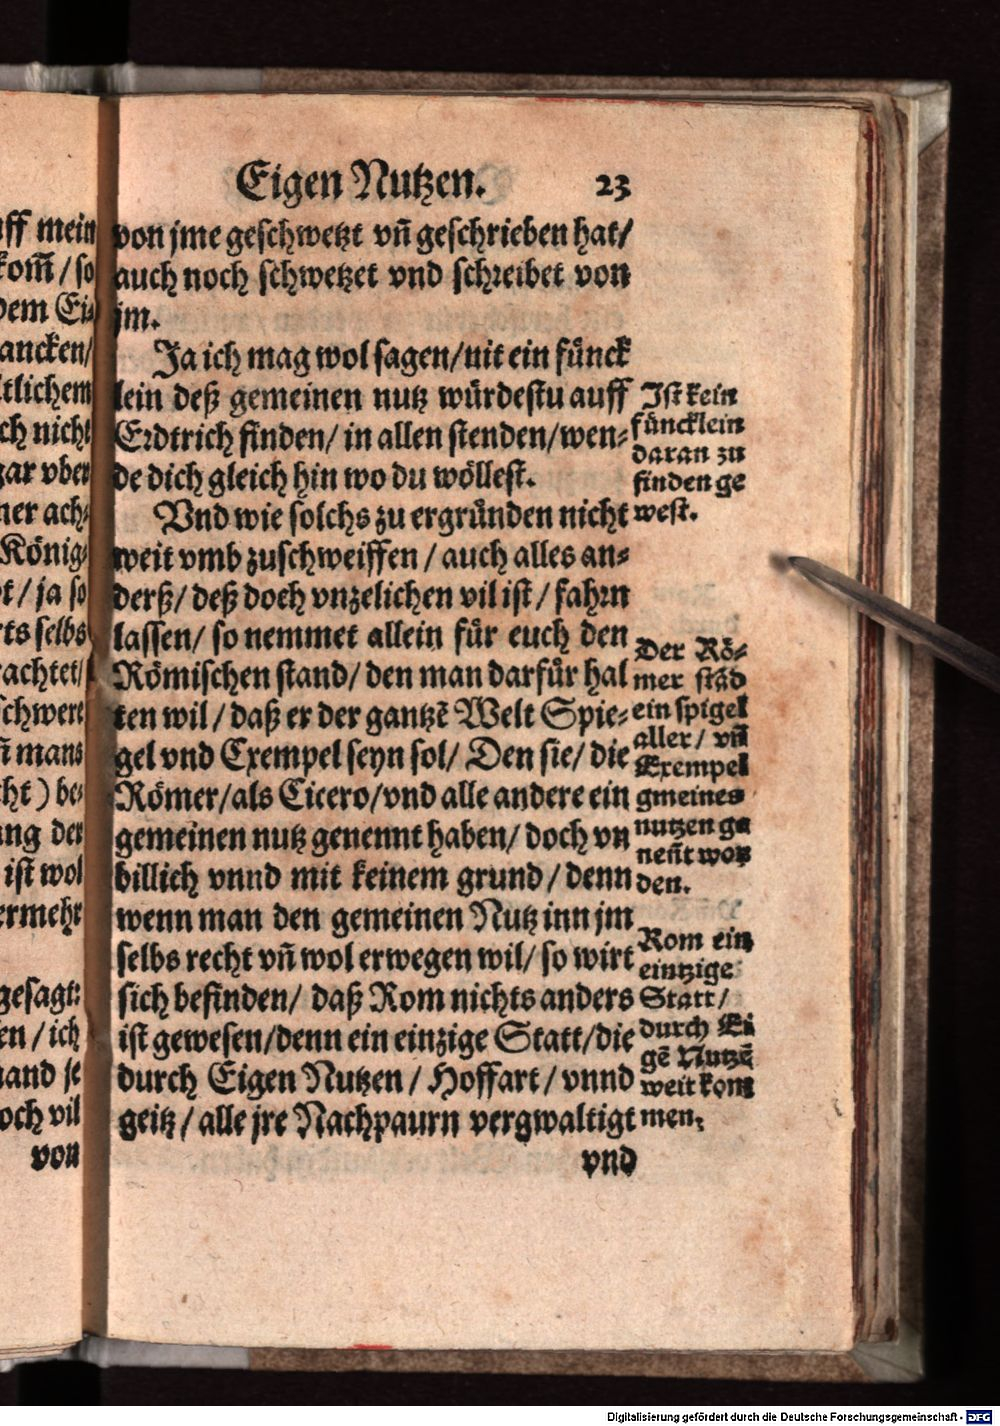 Eigen Nutzen. 23
von jme geschwetzt vñ geschrieben hat/
auch noch schwetzet vnd schreibet von
jm.
Ja ich mag wol sagen/nit ein fünck
lein deß gemeinen nutz würdestu auff
Erdtrich finden/ in allen stenden/wen-
de dich gleich hin wo du wöllest.
Vnd wie solchs zu ergründen nicht
weit vmb zuschweiffen / auch alles an-
derß/ deß doch vnzelichen vil ist/ fahrn
lassen/ so nemmet allein für euch den
Römischen stand/ den man darfür hal
ten wil/ daß er der gantzẽ Welt Spie-
gel vnd Exempel seyn sol/ Den sie/ die
Römer/als Cicero/vnd alle andere ein
gemeinen nutz genennt haben/ doch vn
billich vnnd mit keinem grund/ denn
wenn man den gemeinen Nutz inn jm
selbs recht vñ wol erwegen wil/ so wirt
sich befinden/ daß Rom nichts anders
ist gewesen/denn ein einzige Statt/die
durch Eigen Nutzen / Hoffart/ vnnd
geitz/ alle jre Nachpaurn vergwaltigt
vnd
Ist kein
füncklein
daran zu
finden ge
west.
Der Rö-
mer städ
ein spigel
aller/ vñ
Exempel
gmeines
nutzen ge
neñt wor
den.
Rom ein
eintzige
Statt/
durch Ei
gẽ Nutzẽ
weit kom
men.
uff mein
komm̃/ so
dem Ei-
ancken/
tlichem
ch nicht
gar vber
ner ach-
König-
et/ ja so
rts selbs
rachtet/
schwert
ñ mans
cht) be-
ung der
ist wol
ermehr
gesagt:
en/ ich
mand je
och vil
von
Digitalisierung gefördert durch die Deutsche Forschungsgemeinschaft - DFG